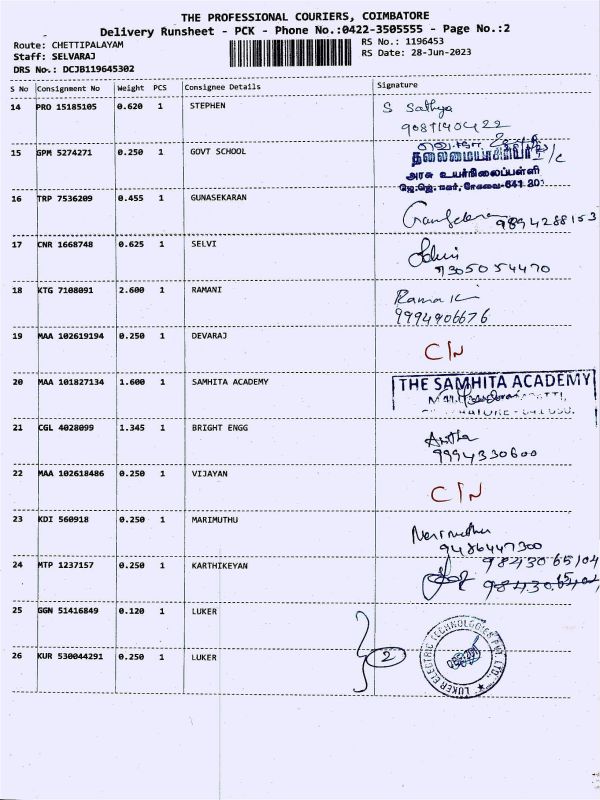 THE PROFESSIONAL COURIERS, COIMBATORE
Delivery Runsheet - PCK - Phone No.:0422-3505555 - Page No.:2
Route: CHETTIPALAYAM RS No.: 1196453
Staff: SELVARAJ RS Date: 28-Jun-2023
DRS No.: DCJB119645302
S No Consignment No Weight PCS Consignee Details Signature
14 PRO 15185105 0.620 1 STEPHEN S Sathya
9081140422
15 GPM 5274271 0.250 1 GOVT SCHOOL
தலைமையாசிரியர் I/c
அரசு உயர்நிலைப்பள்ளி
16 TRP 7536209 0.455 1 GUNASEKARAN
9894288153
17 CNR 1668748 0.625 1 SELVI
9305054470
18 KTG 7108091 2.600 1 RAMANI
9994906676
19 MAA 102619194 0.250 1 DEVARAJ C/N
20 MAA 101827134 1.600 1 SAMHITA ACADEMY THE SAMHITA ACADEMY
21 CGL 4028099 1.345 1 BRIGHT ENGG Anitha
9994330600
22 MAA 102618486 0.250 1 VIJAYAN C/N
23 KDI 560918 0.250 1 MARIMUTHU Marimuthu
9486447300
24 MTP 1237157 0.250 1 KARTHIKEYAN 9843065104
25 GGN 51416849 0.120 1 LUKER
26 KUR 530044291 0.250 1 LUKER 2 LUKER ELECTRIC TECHNOLOGIES PVT. LTD.